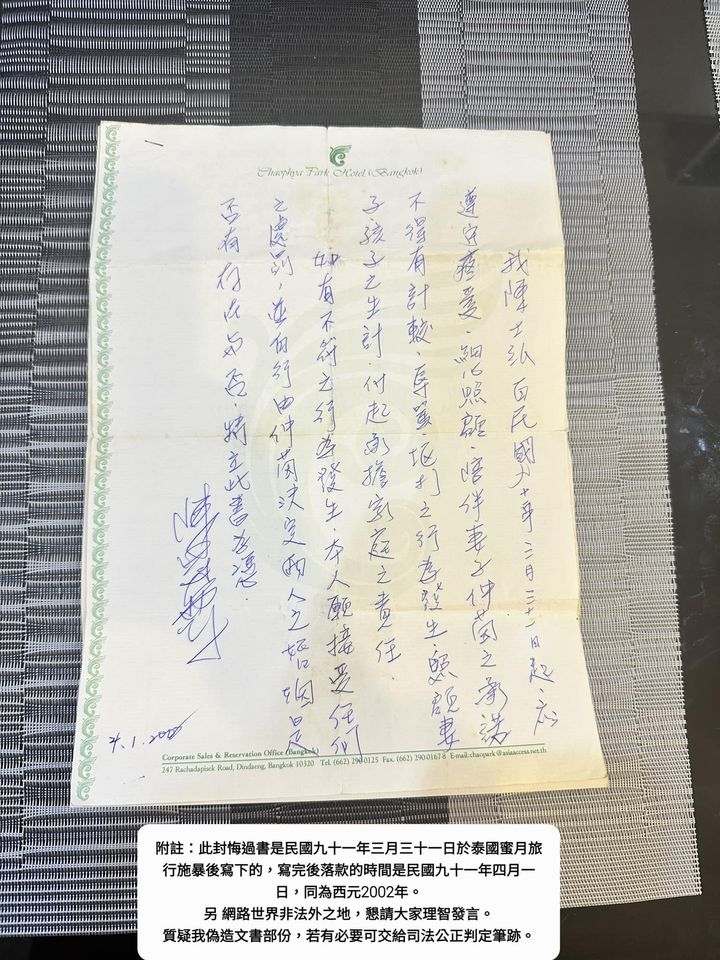 Chaophya Park Hotel (Bangkok)
我陳士 自民國九十年三月三十一日起，應
遵守疼愛、細心照顧、陪伴妻子仲茵之承諾
不得有計較、辱罵、毆打之行為發生，照顧妻
子孩子之生計，付起承擔家庭之責任．
如有不符之行為發生，本人願接受任何
之處罰，並自行由仲茵決定兩人之婚姻是
否有存在與否，特立此書為憑．
4.1.2002
Corporate Sales & Reservation Office (Bangkok)
247 Rachadapisek Road, Dindaeng, Bangkok 10320 Tel. (662) 290-0125 Fax. (662) 290-0167-8 E-mail:chaopark@asiaaccess.net.th
附註：此封悔過書是民國九十一年三月三十一日於泰國蜜月旅
行施暴後寫下的，寫完後落款的時間是民國九十一年四月一
日，同為西元2002年。
另 網路世界非法外之地，懇請大家理智發言。
質疑我偽造文書部份，若有必要可交給司法公正判定筆跡。